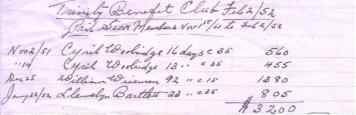 Trinity Benefit Club Feb 2/52
Paid Sick Members Nov 1st/51 to Feb 2/52
Nov 2/51 Cyril Woolridge 16 days @ 35 560
" 14 Cyril Woolridge 13 " @ 35 455
Dec 25 William 92 " @ 15 1380
Jany 22/52 Llewelyn Bartlett 23 " @ 35 805
$3200